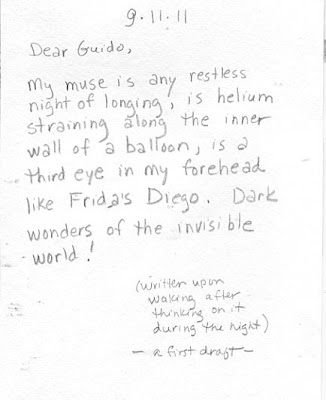 9.11.11
Dear Guido,
My muse is any restless
night of longing, is helium
straining along the inner
wall of a balloon, is a
third eye in my forehead
like Frida's Diego. Dark
wonders of the invisible
world!
(written upon
waking after
thinking on it
during the night)
— a first draft —